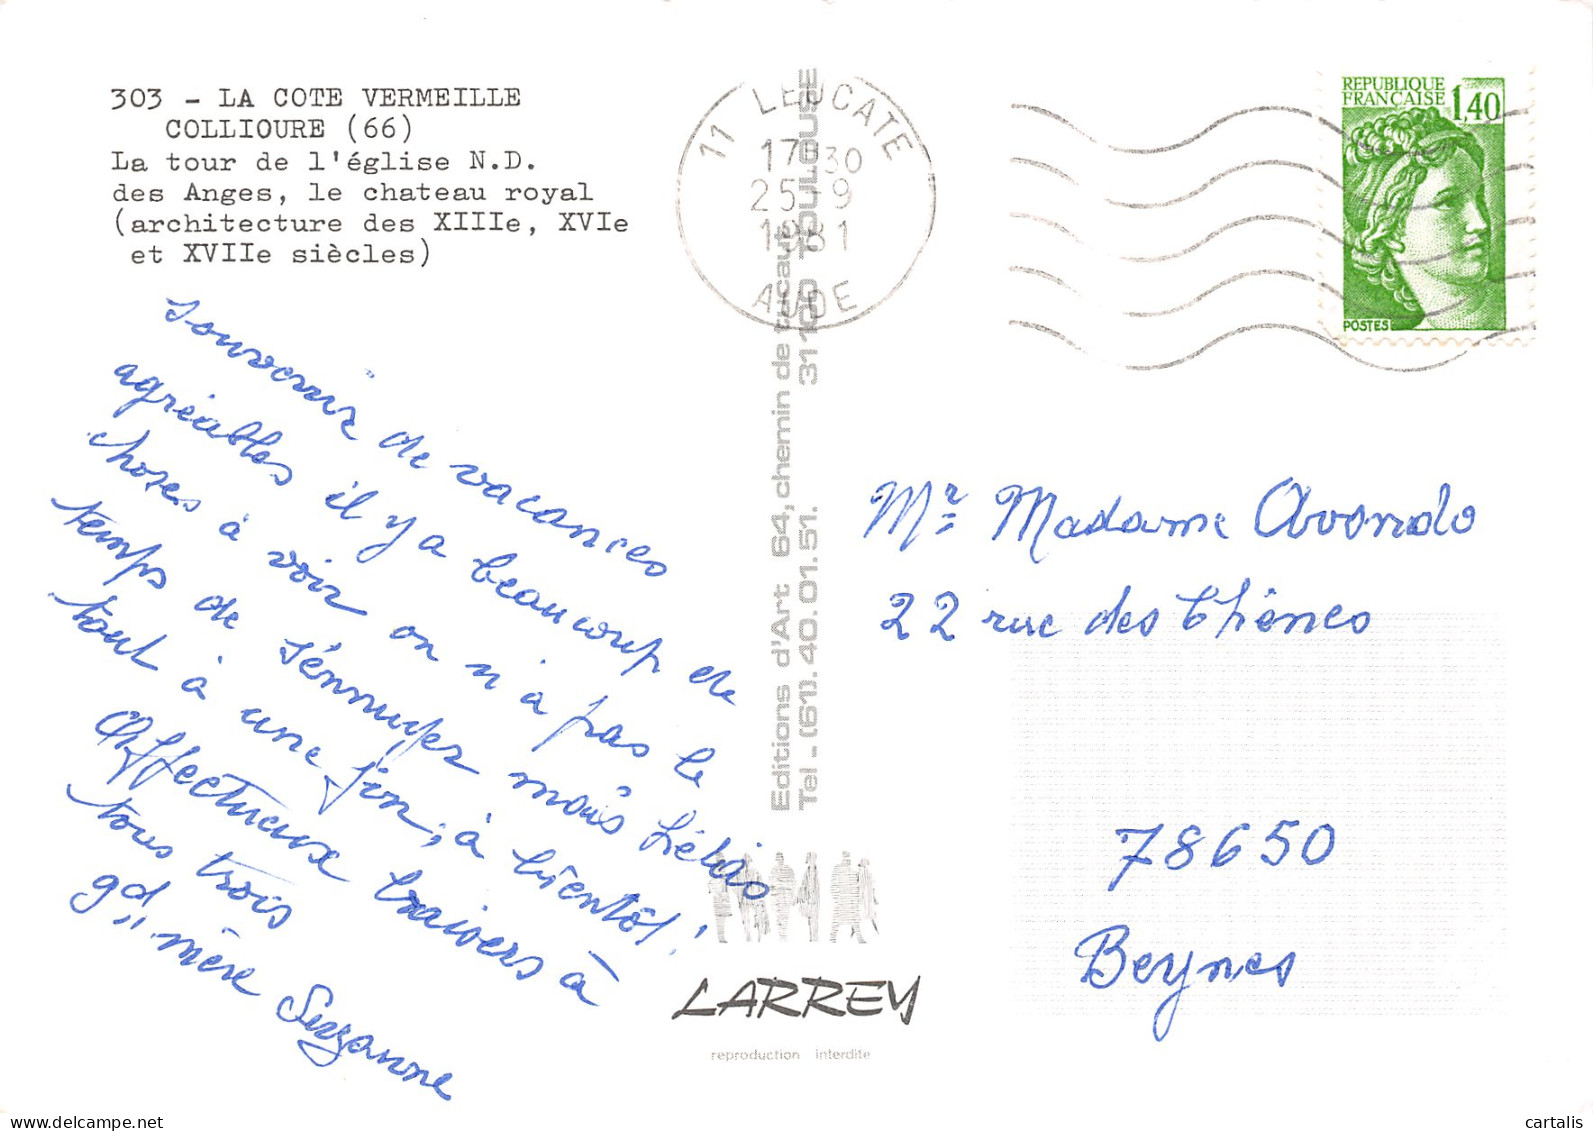 303 - LA COTE VERMEILLE
COLLIOURE (66)
La tour de l'église N.D.
des Anges, le chateau royal
(architecture des XIIIe, XVIe
et XVIIe siècles)
11 LEUCATE
17H30
25-9
1981
AUDE
REPUBLIQUE
FRANÇAISE
1,40
POSTES
Souvenir de vacances
agréables il y a beaucoup de
choses à voir on n'a pas le
temps de s'énnuyer mais hélas
tout à une fin, à bientôt!
Affectueux baisers à
tous trois
gd,, mère Suzanne
Editions d'Art 64, chemin de tucaut 31100 TOULOUSE
Tel - (61). 40.01.51.
Mr Madame Avondo
22 rue des Chênes
78650
Beynes
LARREY
reproduction interdite
delcampe.net
cartalis